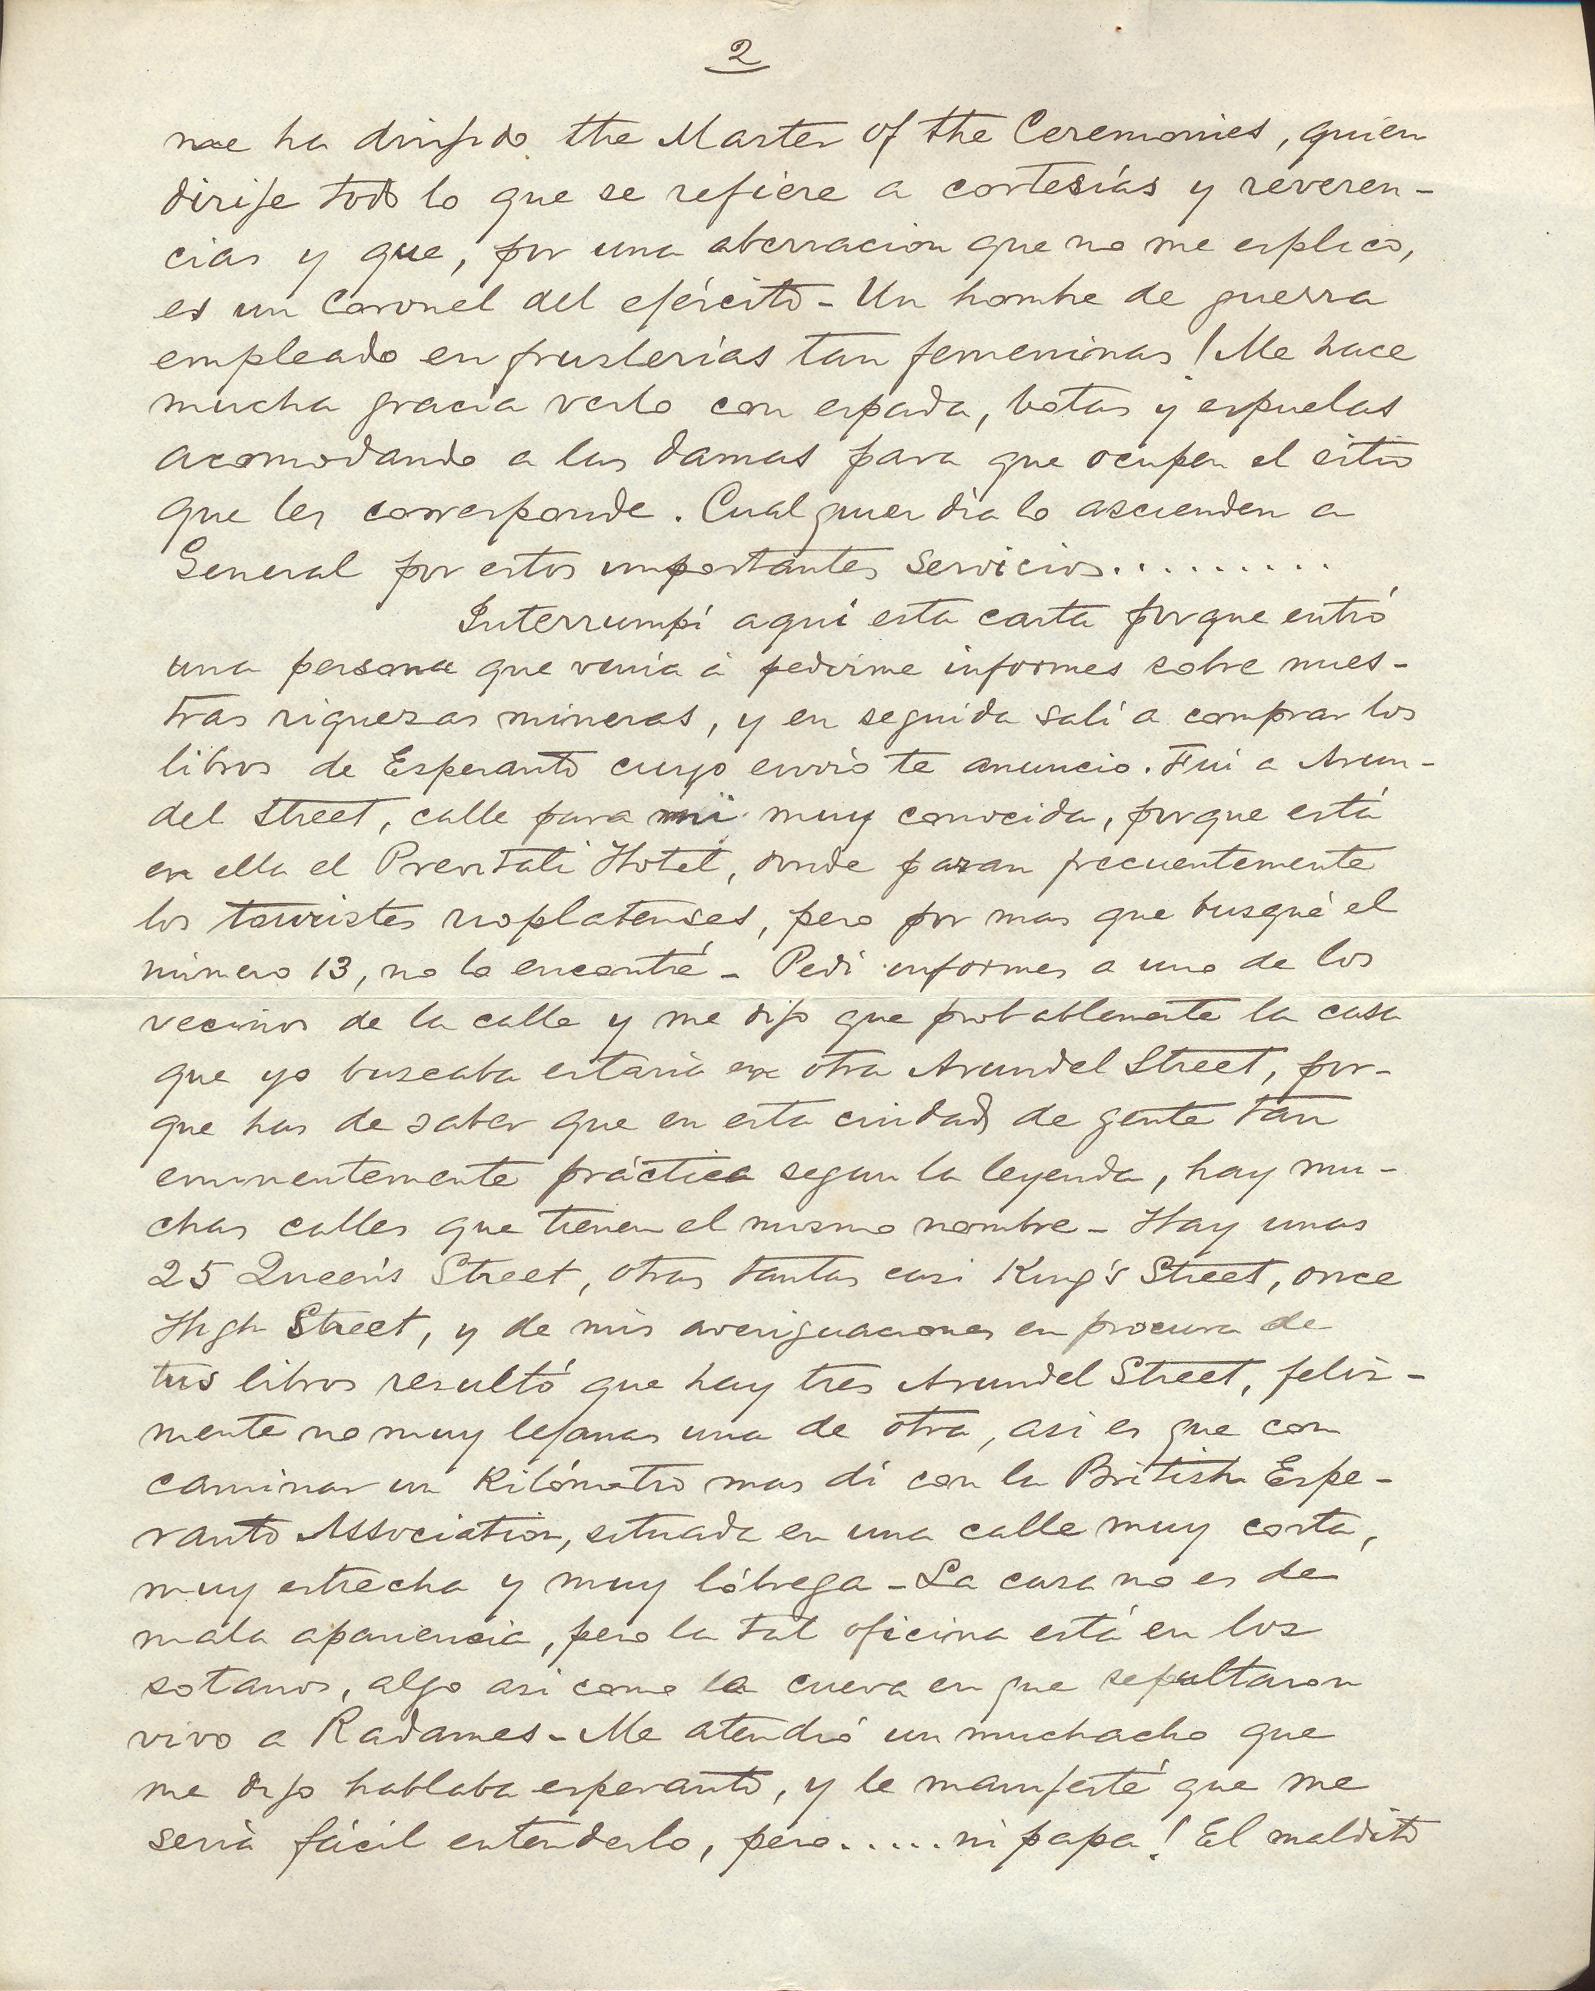 2
me ha dirijido the Master of the Ceremonies, quien
dirije todo lo que se refiere a cortesías y reveren-
cias y que, por una aberracion que no me esplico,
es un Coronel del ejército - Un hombre de guerra
empleado en fruslerias tan femeninas! Me hace
mucha gracia verlo con espada, botas y espuelas
acomodando a las damas para que ocupen el sitio
que les corresponde. Cualquier dia lo ascienden a
General por estos importantes servicios.........
Interrumpí aquí esta carta porque entró
una persona que venia á pedirme informes sobre nues-
tras riquezas mineras, y en seguida salí a comprar los
libros de Esperanto cuyo envío te anuncio. Fui a Arun-
del Street, calle para mi muy conocida, porque está
en ella el Previtali Hotel, donde paran frecuentemente
los touristes rioplatenses, pero por mas que busqué el
número 13, no lo encontré - Pedí informes a uno de los
vecinos de la calle y me dijo que probablemente la casa
que yo buscaba estaria en otra Arundel Street, por-
que has de saber que en esta ciudad de gente tan
eminentemente práctica segun la leyenda, hay mu-
chas calles que tienen el mismo nombre - Hay unas
25 Queen's Street, otras tantas casi King's Street, once
High Street, y de mis averiguaciones en procura de
tus libros resultó que hay tres Arundel Street, feliz-
mente no muy lejanas una de otra, asi es que con
caminar un Kilómetro mas dí con la British Espe-
ranto Association, situada en una calle muy corta,
muy estrecha y muy lóbrega - La casa no es de
mala apariencia, pero la tal oficina está en los
sotanos, algo asi como la cueva en que sepultaron
vivo a Radames - Me atendió un muchacho que
me dijo hablaba esperanto, y le manifesté que me
seria fácil entenderlo, pero.....ni papa! El maldito